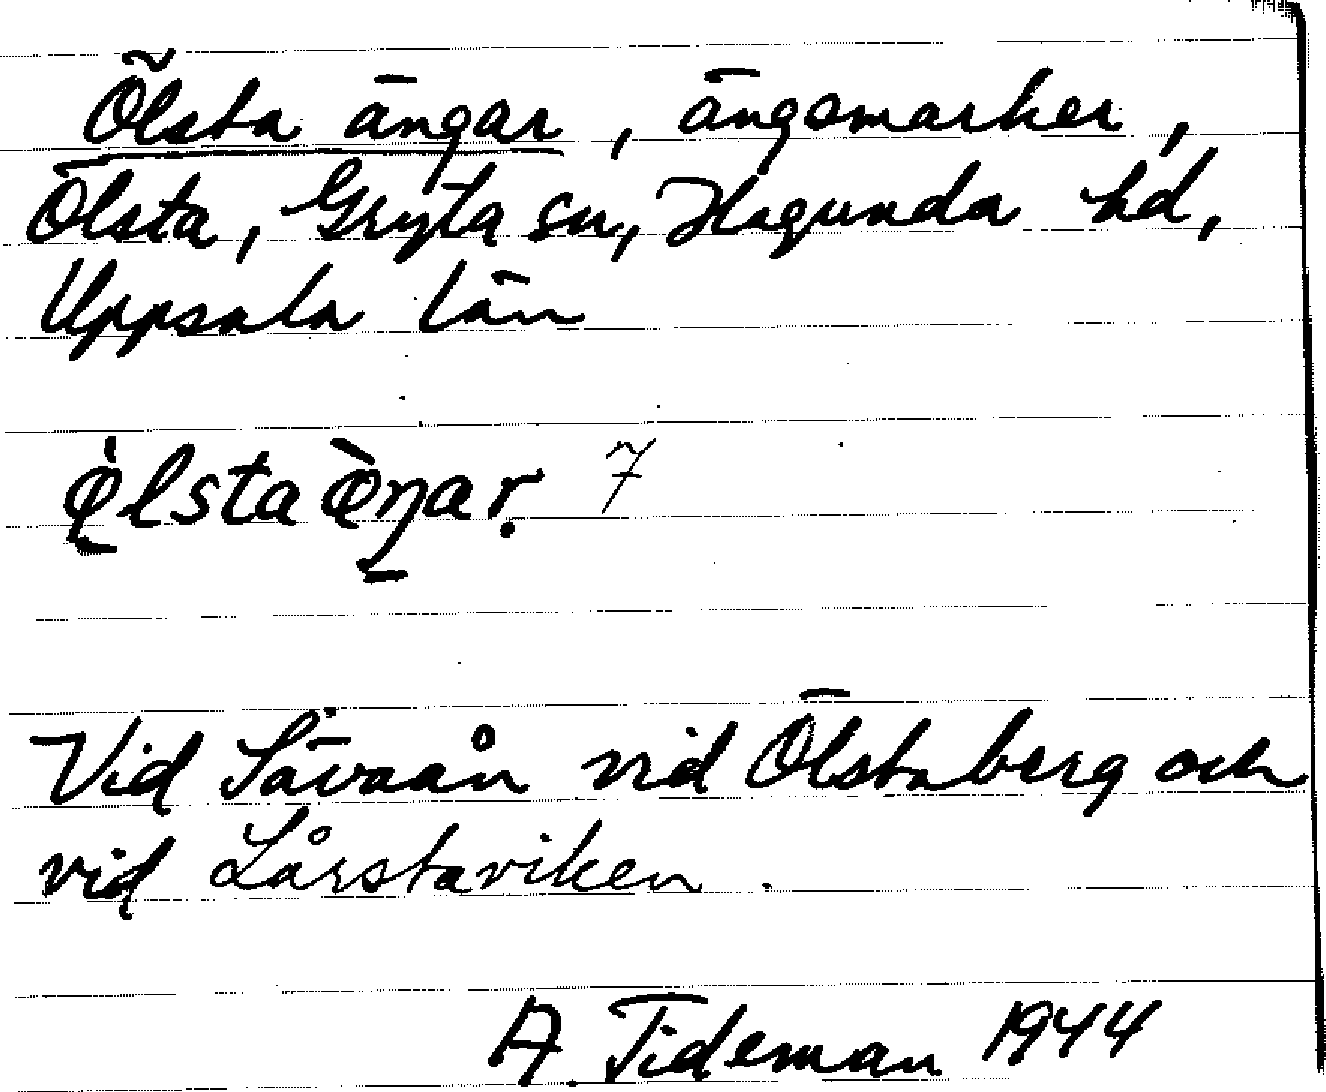 Ölsta ängar, ängsmarker,
Ölsta, Gryta sn, Hagunda hd,
Uppsala län
Vid Sävaån vid Ölstaberg och
vid Lårstaviken.
A Tideman 1944